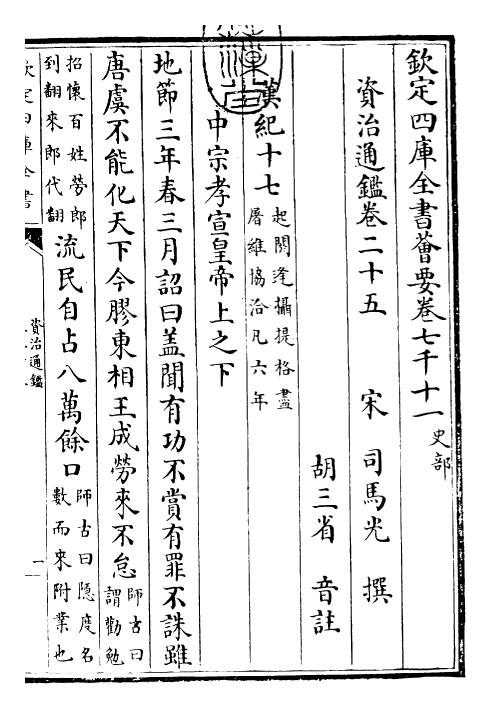 欽定四庫全書薈要卷七千十一 史部
資治通鑑卷二十五 宋 司馬光 撰
胡三省 音註
漢紀十七 起閼逢攝提格盡
屠維協洽凡六年
中宗孝宣皇帝上之下
地節三年春三月詔曰盖聞有功不賞有罪不誅雖
唐虞不能化天下今膠東相王成勞來不怠 師古曰
謂勸勉
招懷百姓勞郎
到翻來郎代翻 流民自占八萬餘口 師古曰隱度名
數而來附業也
欽定四庫全書
資治通鑑
一